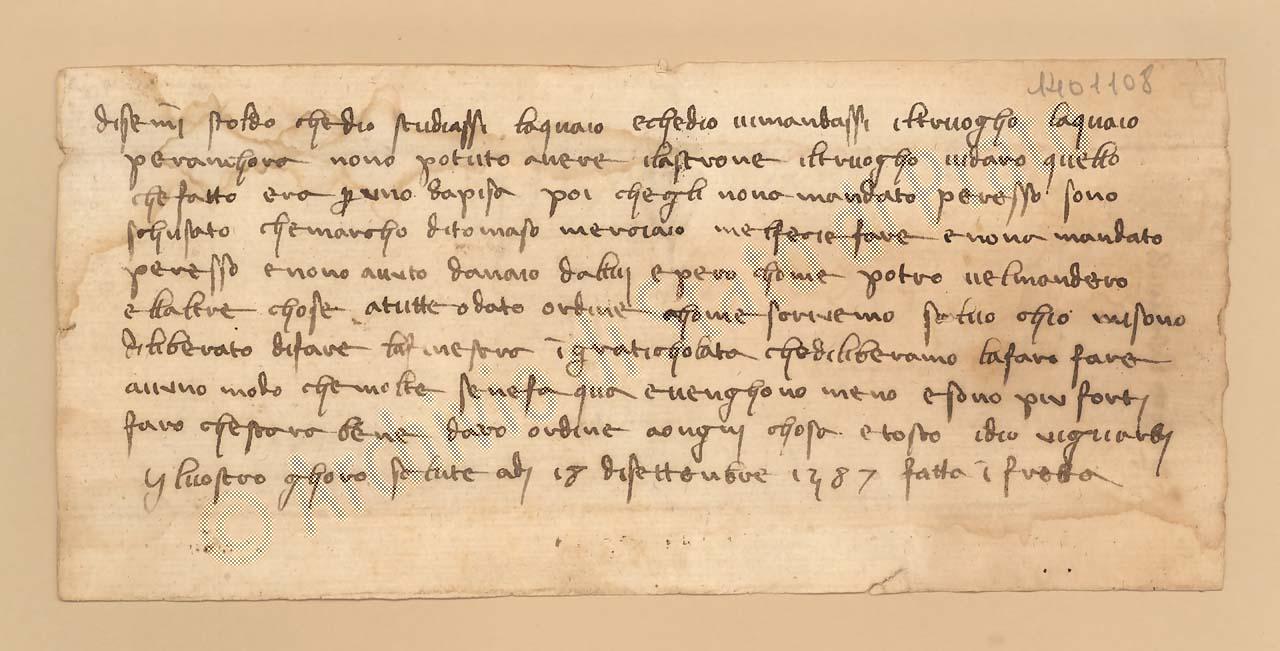 1401108
disemi stoldo chedio studiassi laquaio echedio vimandassi iltruogho laquaio
peranchora nono potuto avere ilastrone iltruogho vidaro quello
chefatto era per uno dapisa poi chegli nona mandato peresso sono
schusato chemarcho ditomaso merciaio melfecie fare enona mandato
peresso enono avuto danaio dallui epero chome potro velmandero
ellaltre chose atutte odato ordine chome scrivemo sotuo chio misono
diliberato difare lafinestra i graticholata chediliberamo lafaro fare
auuno modo chemolte senefa qua evenghono meno esono piu forti
faro chestara bene daro ordine aongni chosa etosto idio viguardi
ilvostro ghoro salute adi 18 disettenbre 1387 fatta i fretta
© Archivio di Stato di Prato